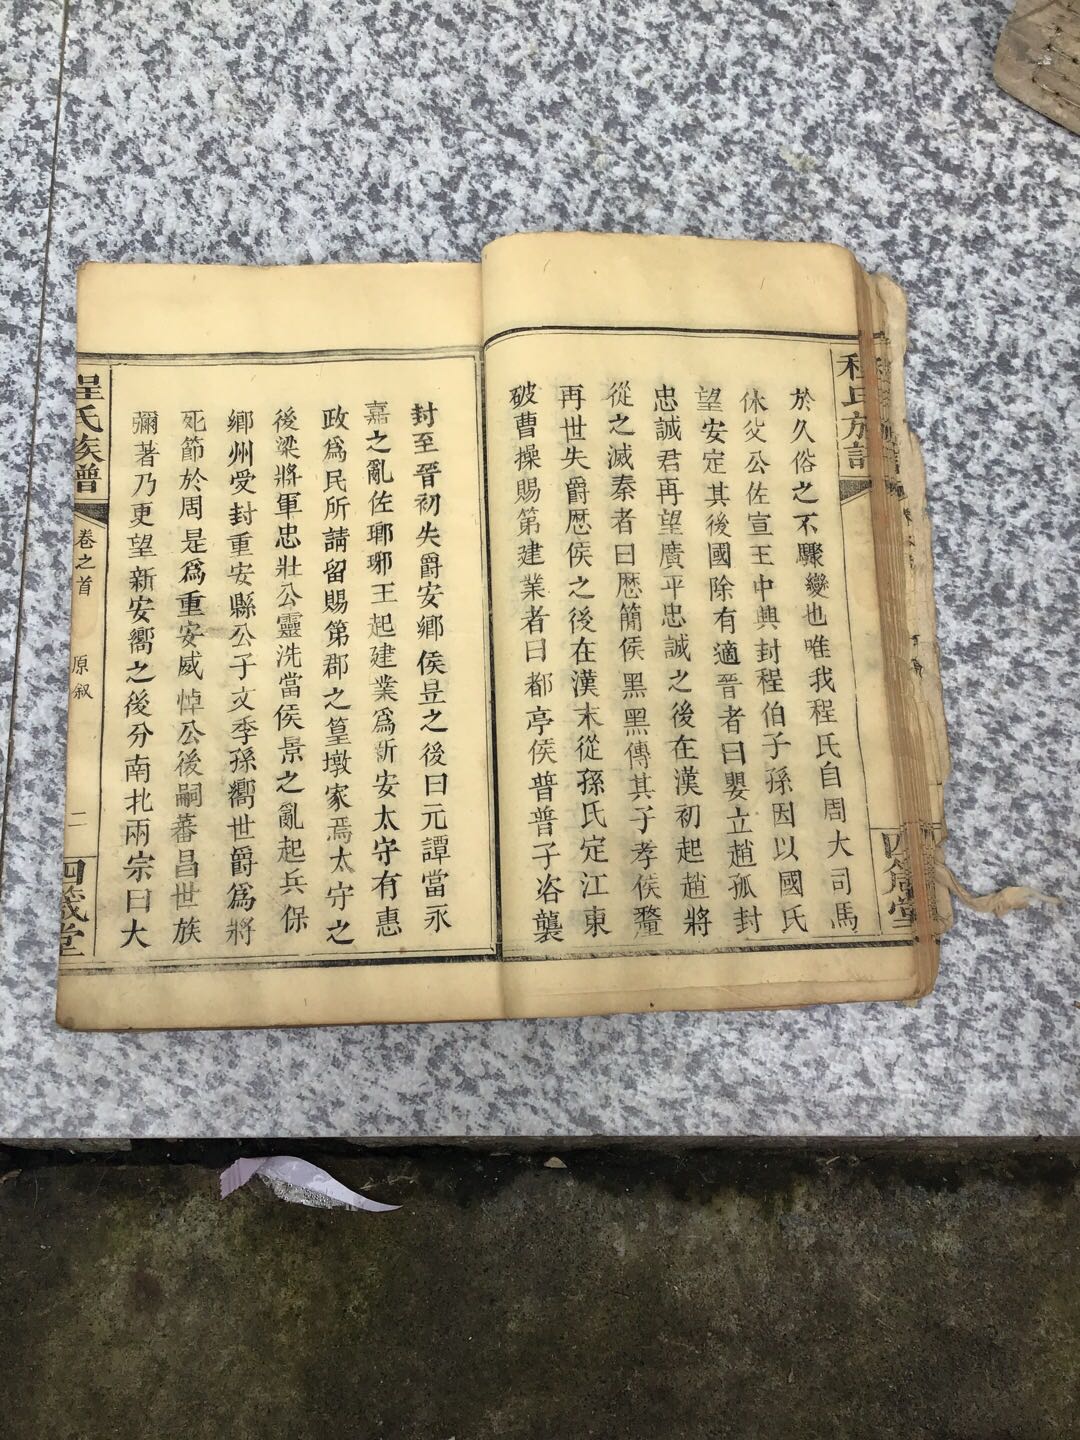 程氏族譜
四箴堂
於久俗之不驟變也唯我程氏自周大司馬
休父公佐宣王中興封程伯子孫因以國氏
望安定其後國除有適晉者曰嬰立趙孤封
忠誠君再望廣平忠誠之後在漢初起趙將
從之滅秦者曰歷簡侯黑黑傳其子孝侯釐
再世失爵歷侯之後在漢末從孫氏定江東
破曹操賜第建業者曰都亭侯普普子咨襲
封至晉初失爵安鄉侯昱之後曰元譚當永
嘉之亂佐瑯琊王起建業為新安太守有惠
政為民所請留賜第郡之篁墩家焉太守之
後梁將軍忠壯公靈洗當侯景之亂起兵保
鄉州受封重安縣公子文季孫嚮世爵為將
死節於周是為重安威悼公後嗣蕃昌世族
彌著乃更望新安嚮之後分南北兩宗曰大
程氏族譜
卷之首
原叙
二
四箴堂